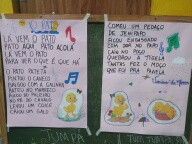 O PATO
LÁ VEM O PATO
PATO AQUI PATO ACOLÁ
LÁ VEM O PATO
PARA VER O QUE É QUE HÁ
O PATO PATETA
PINTOU O CANECO
SURROU A GALINHA
BATEU NO MARRECO
PULOU DO POLEIRO
NO PÉ DO CAVALO
LEVOU UM COICE
CRIOU UM GALO
COMEU UM PEDAÇO
DE JENIPAPO
FICOU ENGASGADO
COM DOR NO PAPO
CAIU NO POÇO
QUEBROU A TIGELA
TANTAS FEZ O MOÇO
QUE FOI PRA PANELA